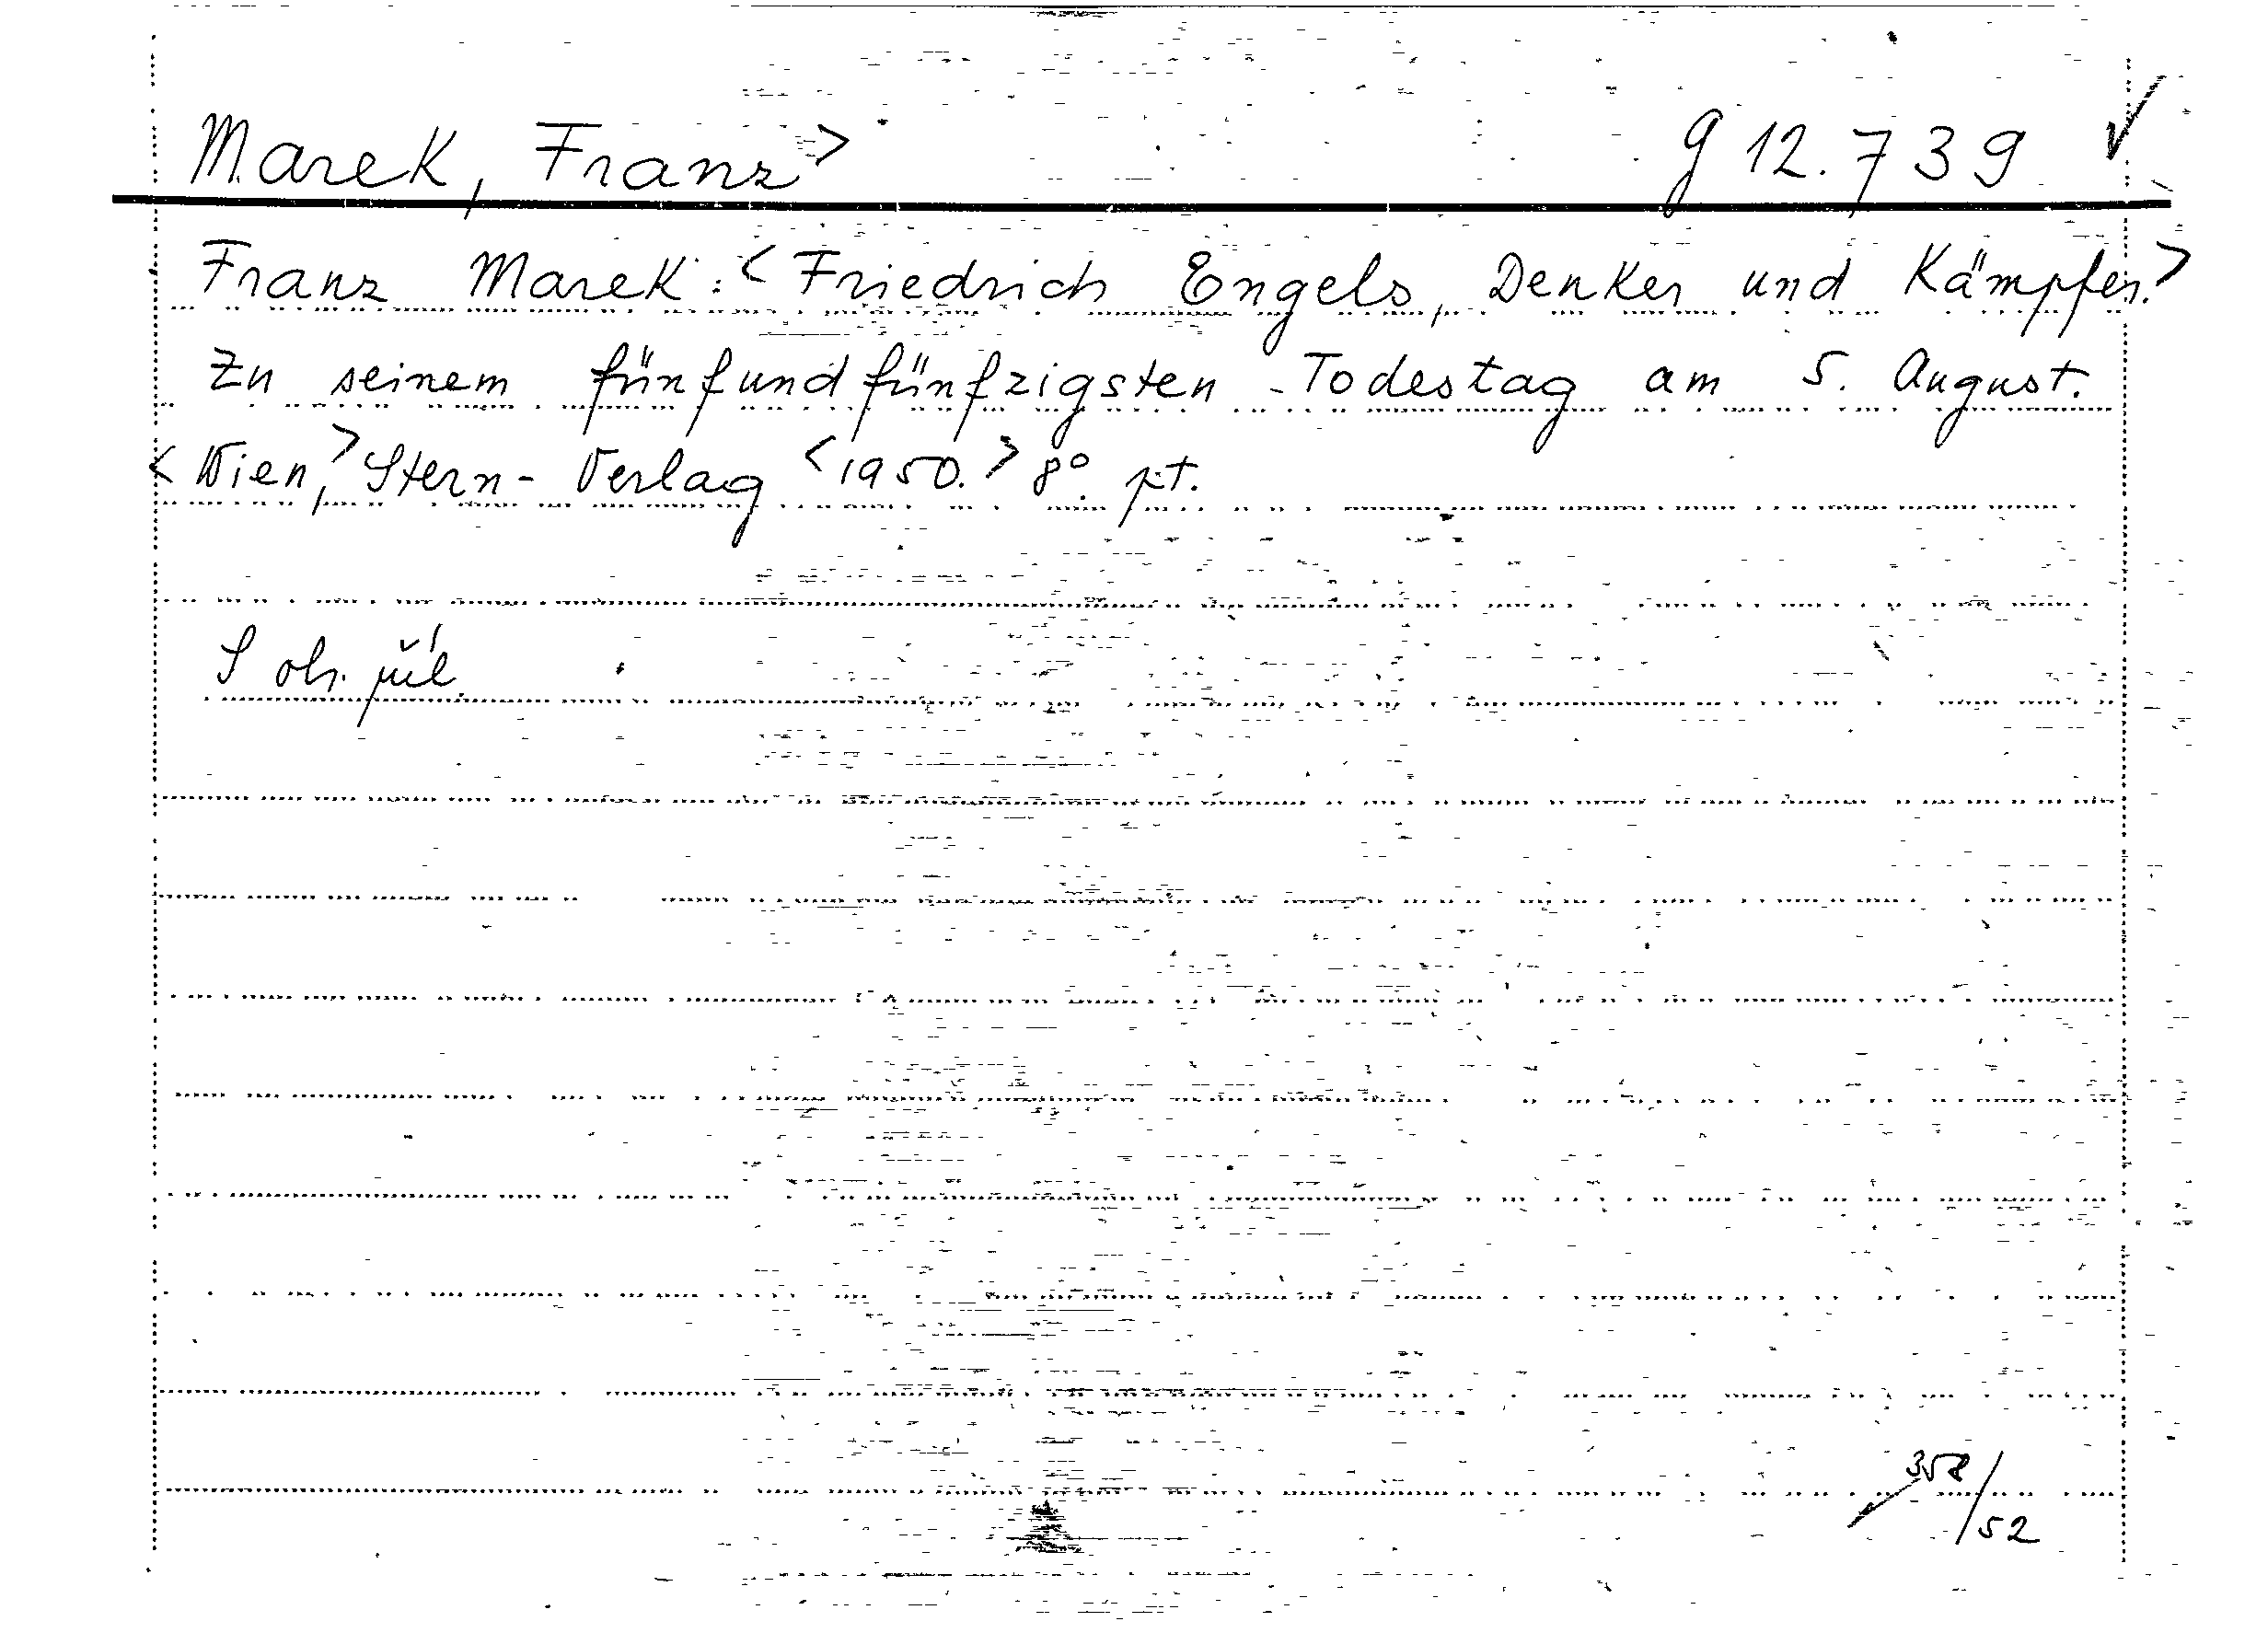 Marek, Franz> g 12.739 ✓
Franz Marek: <Friedrich Engels, Denker und Kämpfer.>
Zu seinem fünfundfünfzigsten Todestag am 5. August.
<Wien,> Stern-Verlag <1950.> 8°. pt.
S obr. příl.
358/52